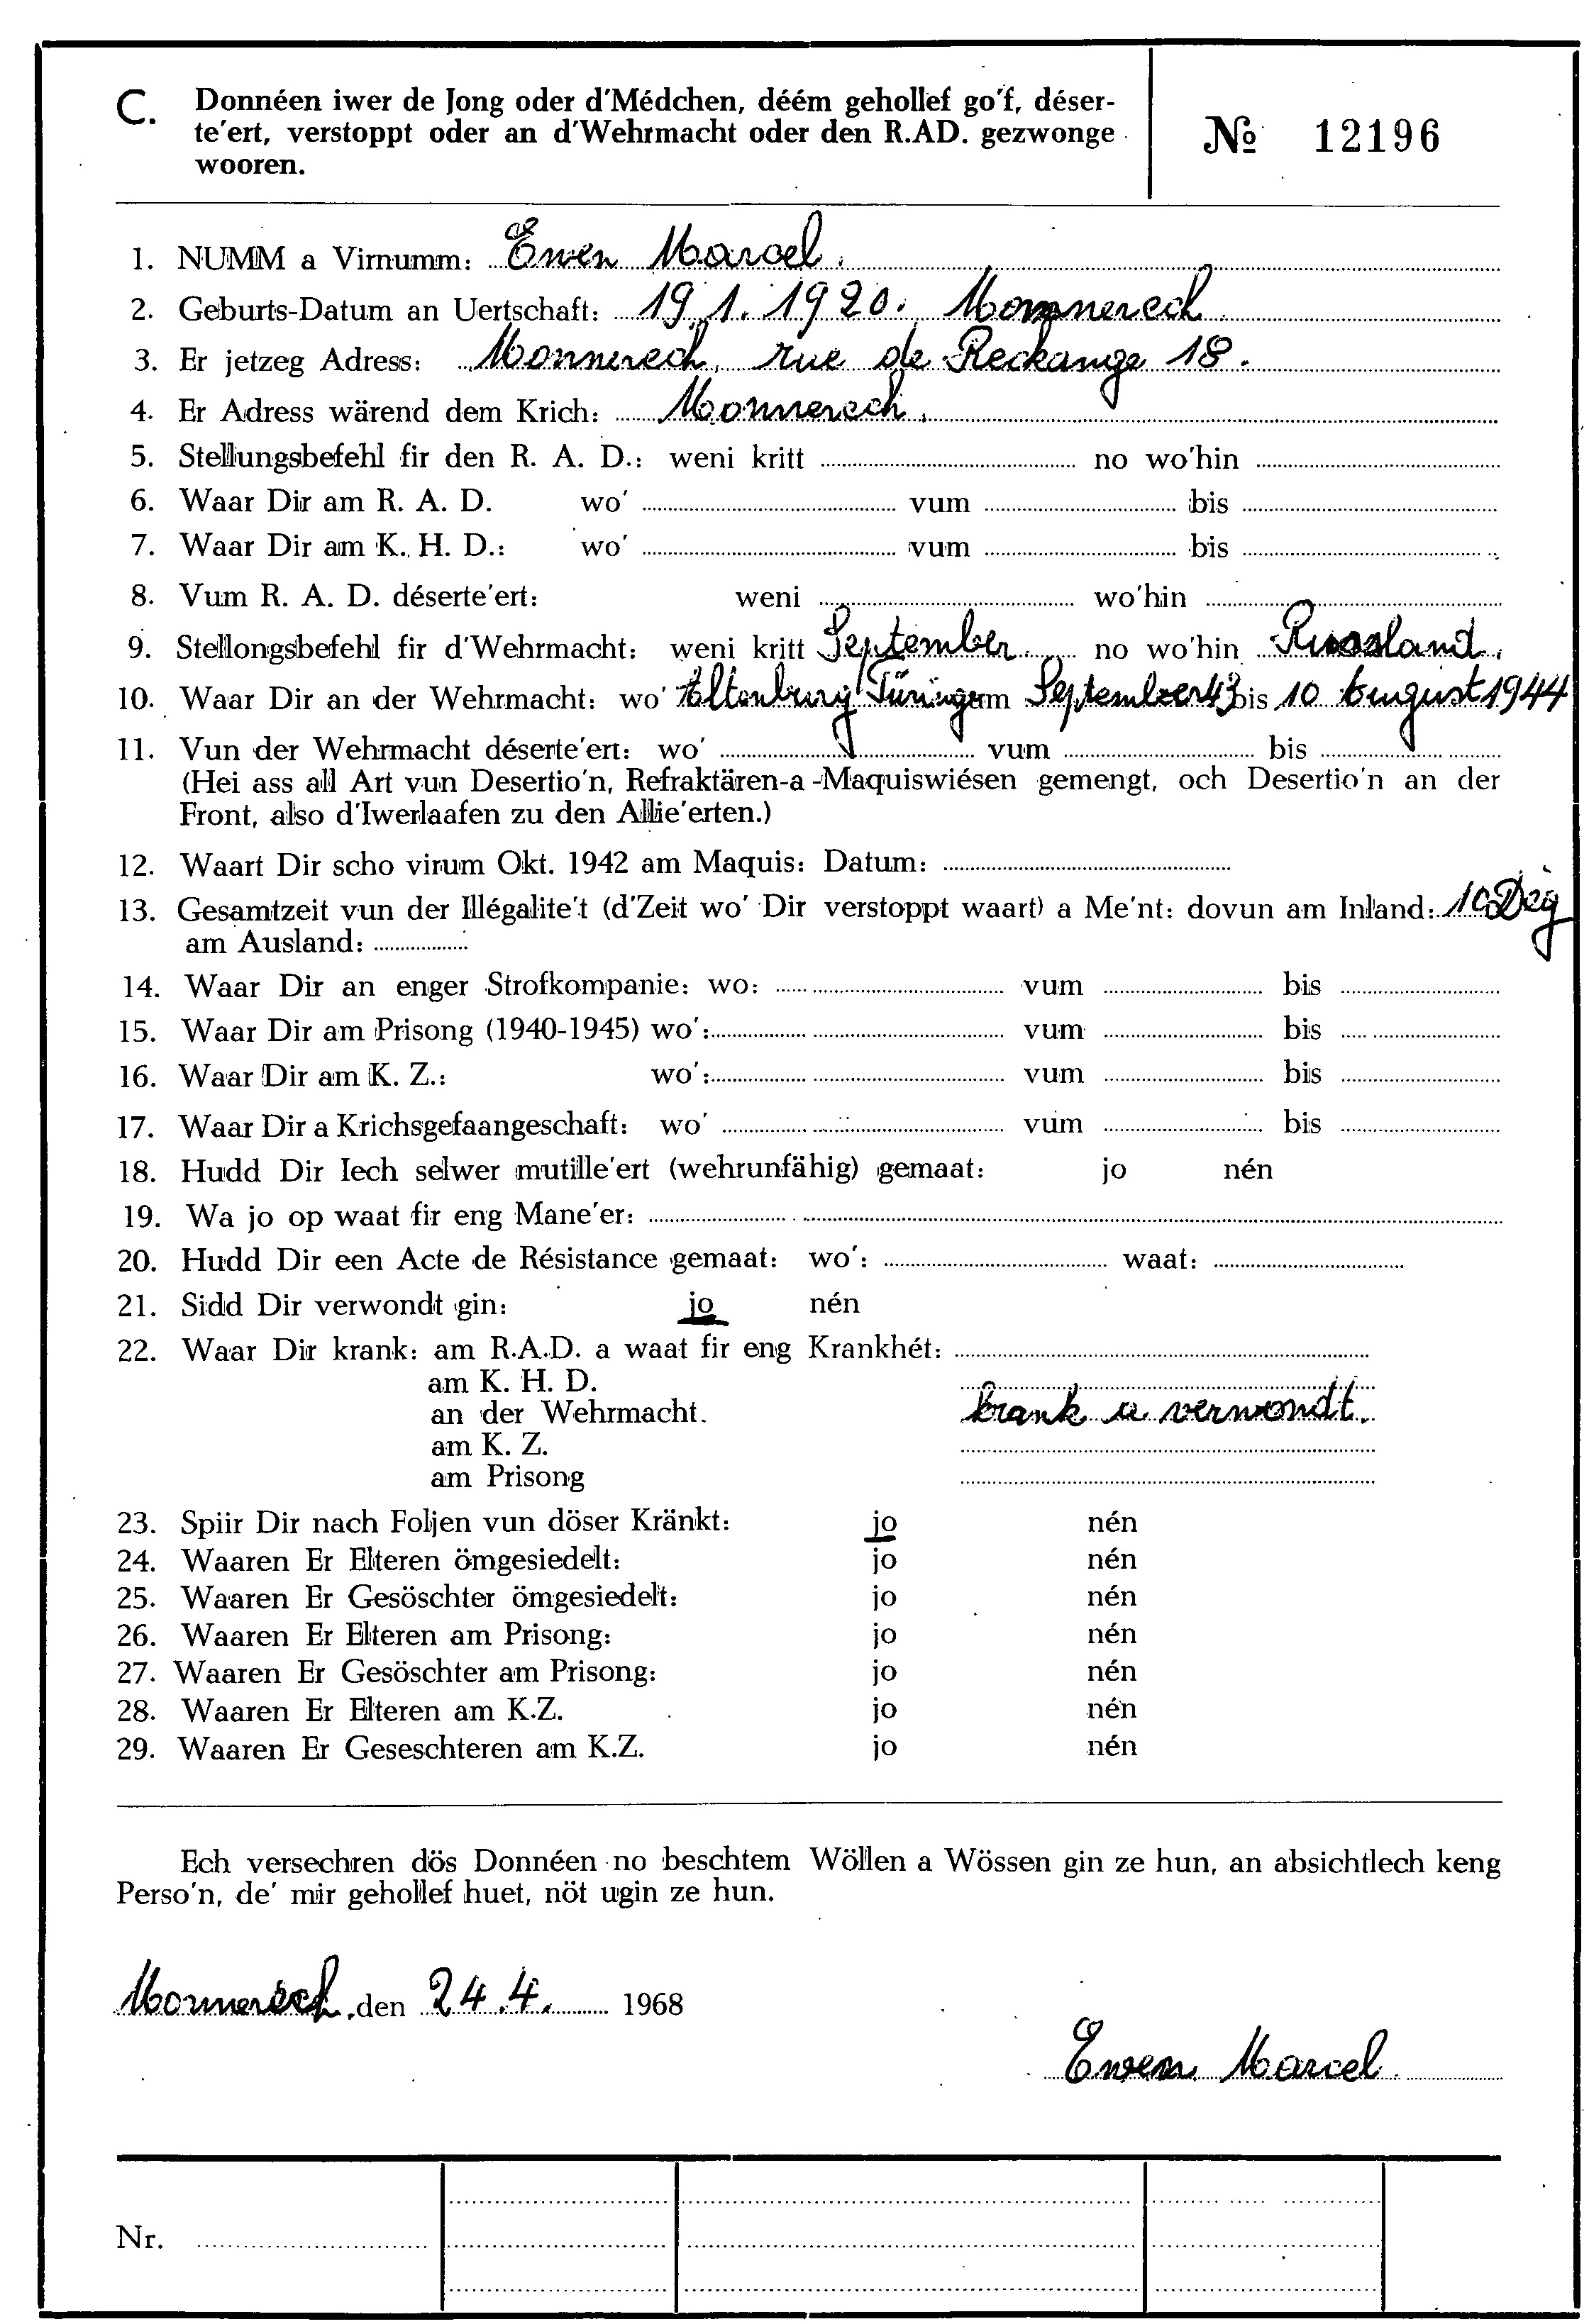 C. Donnéen iwer de Jong oder d'Médchen, déém gehollef go'f, déser-
te'ert, verstoppt oder an d'Wehrmacht oder den R.AD. gezwonge
wooren.
№ 12196
1. NUMM a Virnumm: Ewen Marcel.
2. Geburts-Datum an Uertschaft: 19.1.1920. Monnerech.
3. Er jetzeg Adress: Monnerech, rue de Reckange 18.
4. Er Adress wärend dem Krich: Monnerech.
5. Stellungsbefehl fir den R. A. D.: weni kritt no wo'hin
6. Waar Dir am R. A. D. wo' vum bis
7. Waar Dir am K. H. D.: wo' vum bis
8. Vum R. A. D. déserte'ert: weni wo'hin
9. Stellongsbefehl fir d'Wehrmacht: weni kritt September. no wo'hin Russland.
10. Waar Dir an der Wehrmacht: wo' Altenburg Türingen vum September 43 bis 10 August 1944
11. Vun der Wehrmacht déserte'ert: wo' vum bis
(Hei ass all Art vun Desertio'n, Refraktären-a-Maquiswiésen gemengt, och Desertio'n an der
Front, also d'Iwerlaafen zu den Allie'erten.)
12. Waart Dir scho virum Okt. 1942 am Maquis: Datum:
13. Gesamtzeit vun der Illégalite't (d'Zeit wo' Dir verstoppt waart) a Me'nt: dovun am Inland: 10 Deg
am Ausland:
14. Waar Dir an enger Strofkompanie: wo: vum bis
15. Waar Dir am Prisong (1940-1945) wo': vum bis
16. Waar Dir am K. Z.: wo': vum bis
17. Waar Dir a Krichsgefaangeschaft: wo' vum bis
18. Hudd Dir Iech selwer mutille'ert (wehrunfähig) gemaat: jo nén
19. Wa jo op waat fir eng Mane'er:
20. Hudd Dir een Acte de Résistance gemaat: wo': waat:
21. Sidd Dir verwondt gin: jo nén
22. Waar Dir krank: am R.A.D. a waat fir eng Krankhét:
am K. H. D.
an der Wehrmacht. krank a verwondt.
am K. Z.
am Prisong
23. Spiir Dir nach Foljen vun döser Kränkt: jo nén
24. Waaren Er Elteren ömgesiedelt: jo nén
25. Waaren Er Gesöschter ömgesiedelt: jo nén
26. Waaren Er Elteren am Prisong: jo nén
27. Waaren Er Gesöschter am Prisong: jo nén
28. Waaren Er Elteren am K.Z. jo nén
29. Waaren Er Geseschteren am K.Z. jo nén
Ech versechren dös Donnéen no beschtem Wöllen a Wössen gin ze hun, an absichtlech keng
Perso'n, de' mir gehollef huet, nöt ugin ze hun.
Monnerech, den 24.4. 1968
Ewen Marcel
Nr.